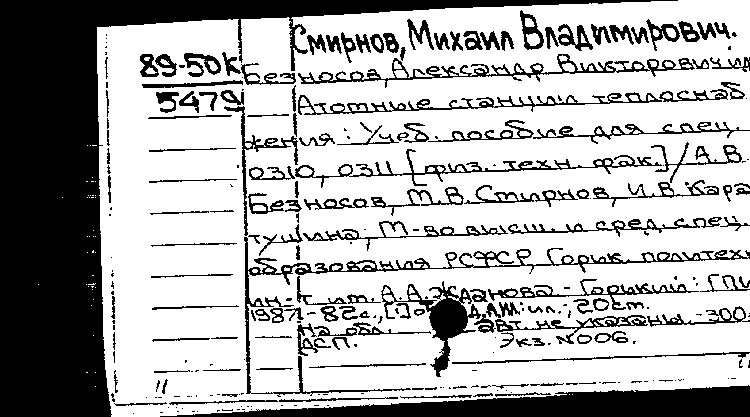 Смирнов, Михаил Владимирович.
89-50к Безносов, Александр Викторович и д
5479 Атомные станции теплоснаб
жения: Учеб. пособие для спец.
0310, 0311 [физ.-техн. фак.] / А.В.
Безносов, М.В. Смирнов, И.В. Кара
тушина; М-во высш. и сред. спец.
образования РСФСР, Горьк. политехн
ин-т им. А.А. Жданова. - Горький: ГПИ
1987. - 82 с., [1] ил.; 20 см.
На обл. авт. не указаны. - 300
ДСП. Экз. №006.
11